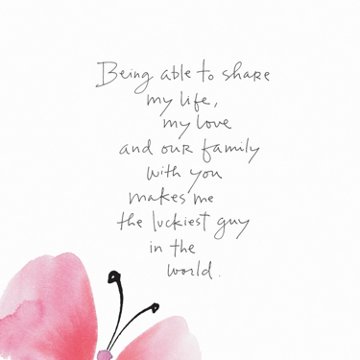 Being able to share
my life,
my love
and our family
with you
makes me
the luckiest guy
in the
world.